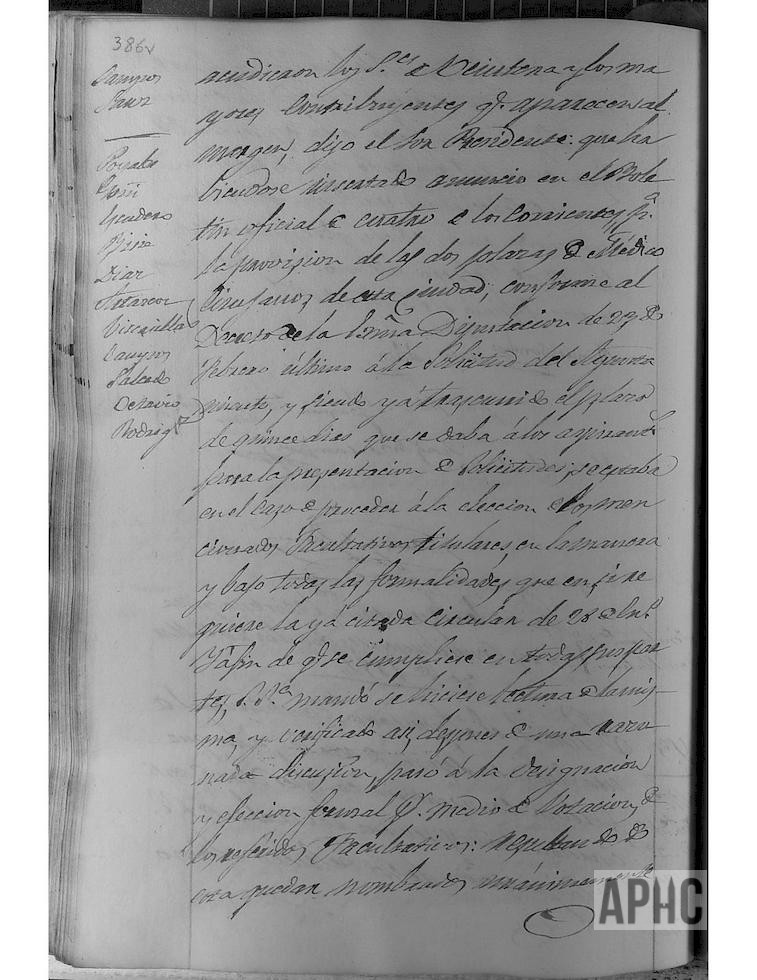 386v
Campos
Sanz
Posada
Espiñ
Escudero
Diaz
Vizcainillas
Campos
Salcedo
Octavio
Rodrig.z
acudieron los S.res de Veintena y los ma
yores contribuyentes q.e aparecen al
margen, dijo el Sor Presidente: que ha
biendose insertado anuncio en el Bole
tin oficial de cuatro de los corrientes, p.a
la provision de las dos plazas de Médico
Cirujanos de esta ciudad, conforme al
Decreto de la Exma Diputacion de 27 de
Febrero último á la solicitud del Ayunta
miento, y siendo ya trascurrido el plazo
de quince dias que se daba á los aspirantes
para la presentacion de solicitudes, se estaba
en el caso de proceder á la eleccion de los men
cionados Facultativos titulares, en la manera
y bajo todas las formalidades que en si re
quiere la ya citada circular de 28 de En.o
Y á fin de q.e se cumpliese en todas sus par
tes, S. S.a mandó se hiciese lectura de la mis-
ma, y verificado asi, despues de una razo
nada discusion, pasó á la designacion
y eleccion formal p.r medio de votacion, de
los referidos Facultativos: resultando de
esta quedar nombrados unánimemente
APHC